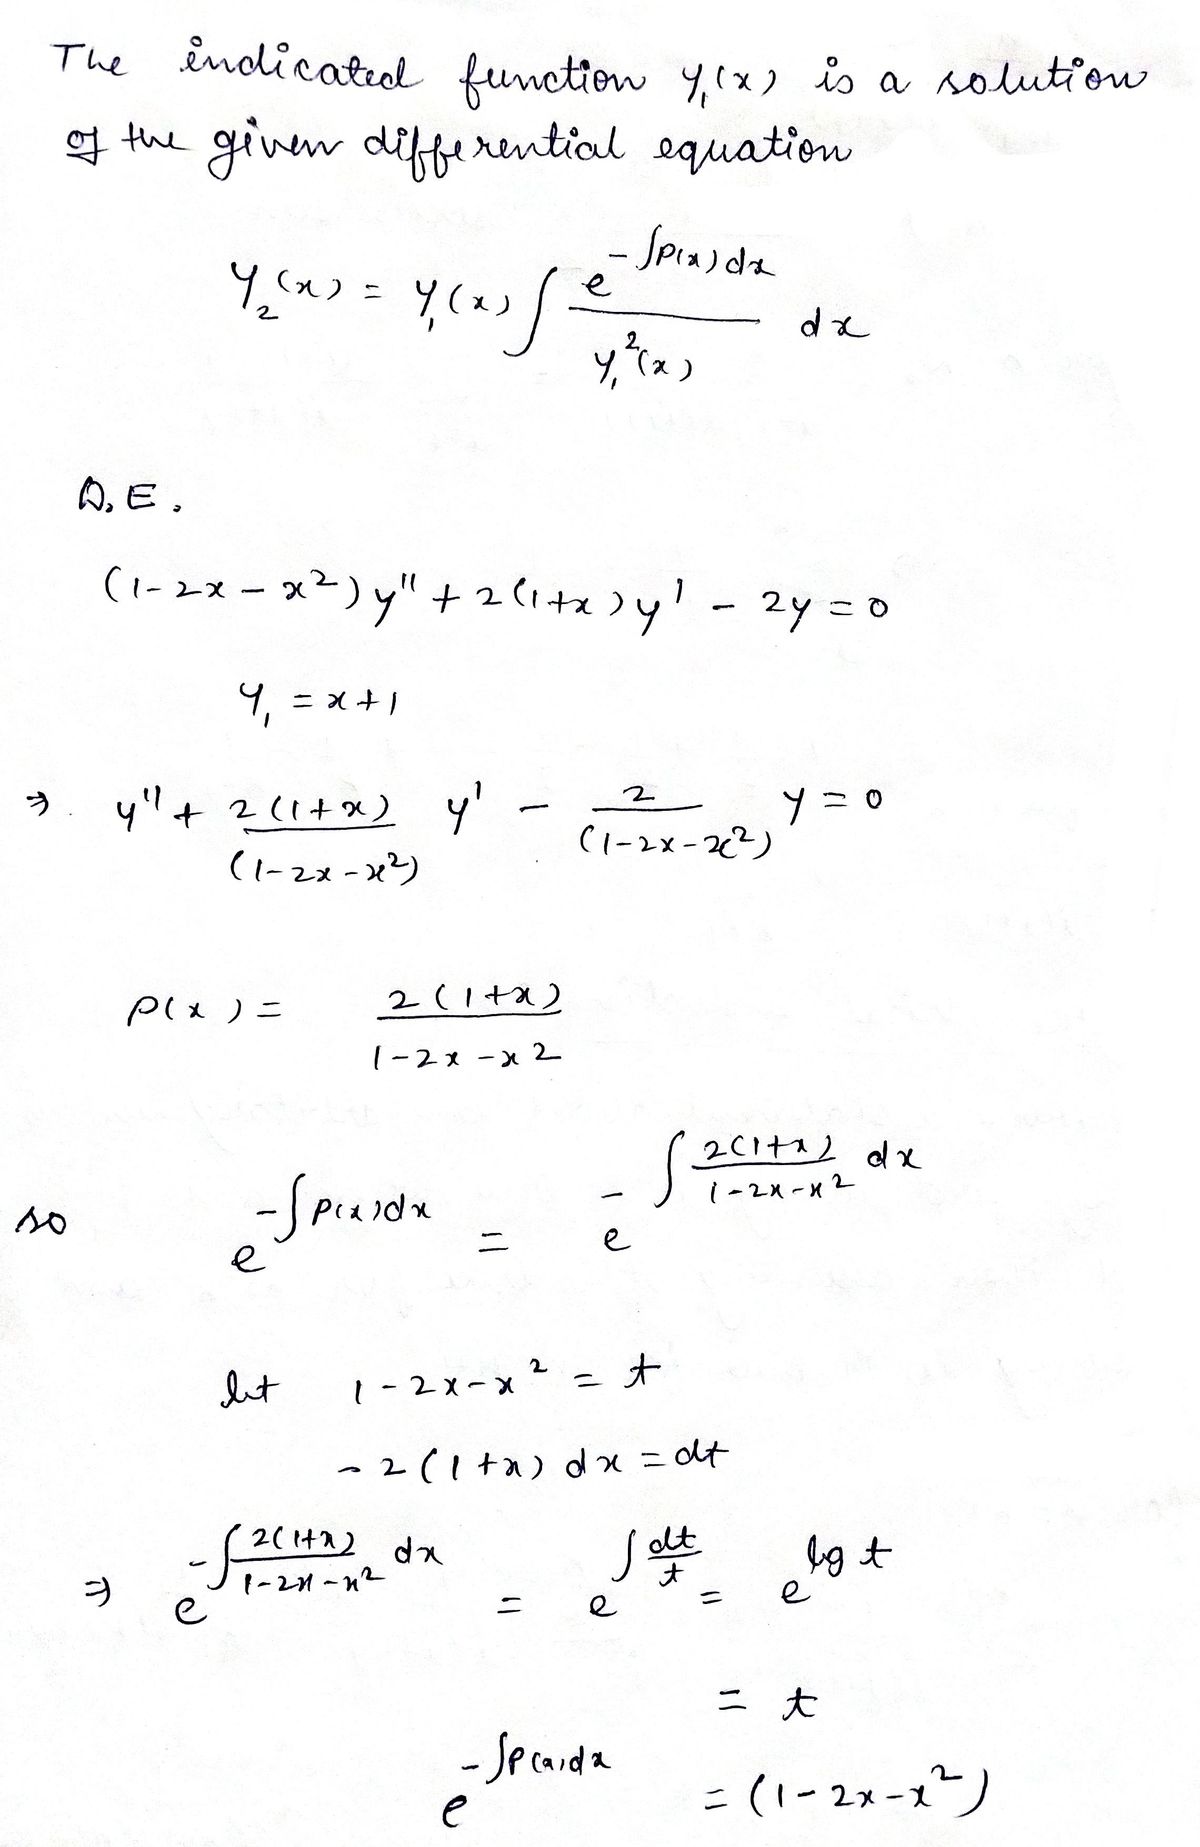 The indicated function y₁(x) is a solution
of the given differential equation
y₂(x) = y₁(x) ∫ e^(-∫P(x)dx) / y₁²(x) dx
D.E.
(1-2x-x²)y'' + 2(1+x)y' - 2y = 0
y₁ = x+1
⇒. y'' + 2(1+x)/(1-2x-x²) y' - 2/(1-2x-x²) y = 0
P(x) = 2(1+x)/1-2x-x2
so e^(-∫P(x)dx) = e^(-∫ 2(1+x)/1-2x-x² dx)
let 1-2x-x² = t
-2(1+x)dx = dt
⇒ e^(-∫ 2(1+x)/1-2x-x² dx) = e^(∫ dt/t) = e^(log t)
= t
e^(-∫P(x)dx) = (1-2x-x²)